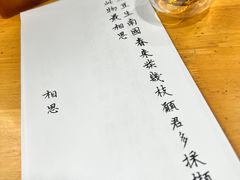 豆生南國春來發幾枝願君多採擷
此物最相思
相思